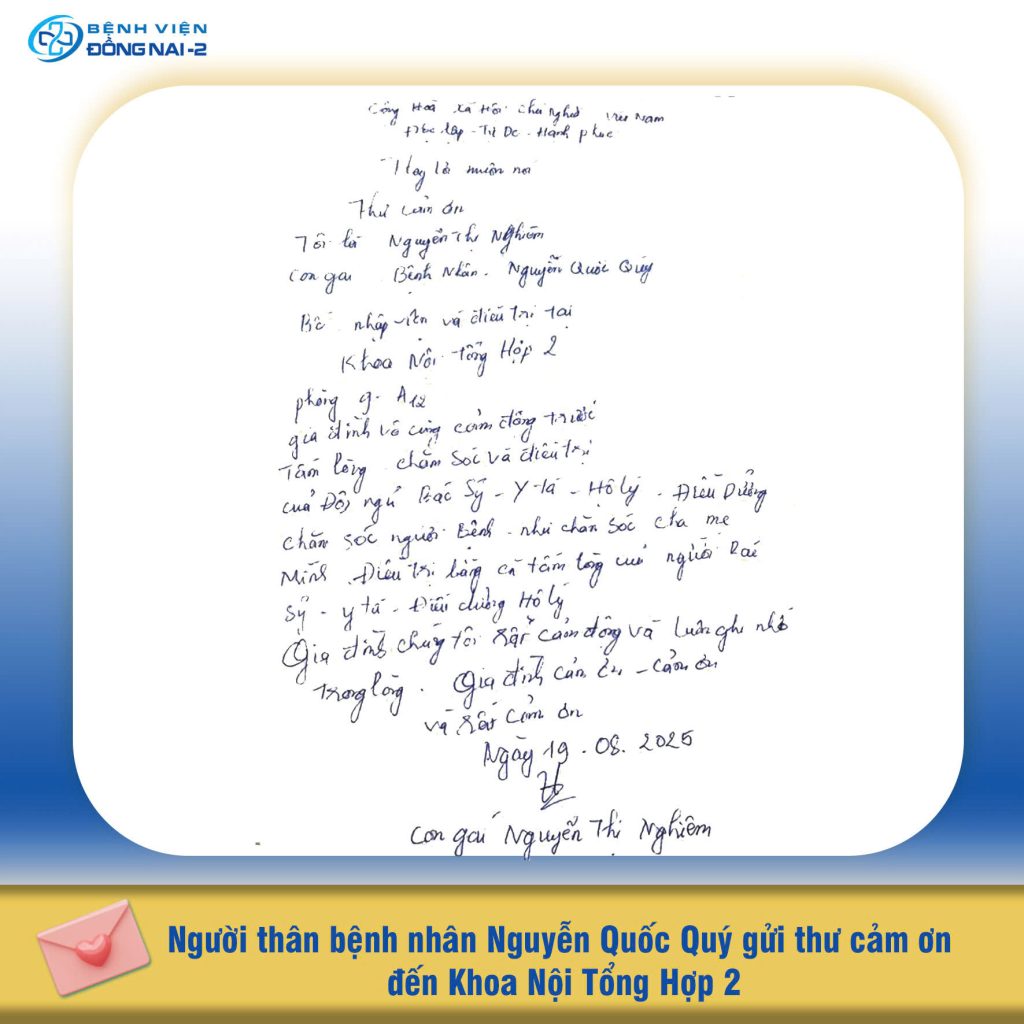 BỆNH VIỆN
ĐỒNG NAI-2
Cộng Hoà xã Hội chủ nghĩa Việt Nam
Độc lập - Tự Do - Hạnh phúc
Thư cảm ơn
Tôi là Nguyễn Thị Nghiêm
Con gái Bệnh Nhân. Nguyễn Quốc Quý
Bố nhập viện và điều trị tại
Khoa Nội tổng Hợp 2
phòng 9. A12
gia đình vô cùng cảm động trước
Tấm lòng chăm sóc và điều trị
của Đội ngũ Bác Sỹ - Y tá - Hộ lý - Điều Dưỡng
chăm sóc người Bệnh như chăm sóc cha mẹ
Mình. Điều trị bằng cả tấm lòng của người Bác
Sỹ - y tá - Điều dưỡng Hộ lý
Gia đình chúng tôi rất cảm động và luôn ghi nhớ
trong lòng. Gia đình cảm ơn - cảm ơn
và rất cảm ơn
Ngày 19.08.2025
Con gái Nguyễn Thị Nghiêm
Người thân bệnh nhân Nguyễn Quốc Quý gửi thư cảm ơn
đến Khoa Nội Tổng Hợp 2